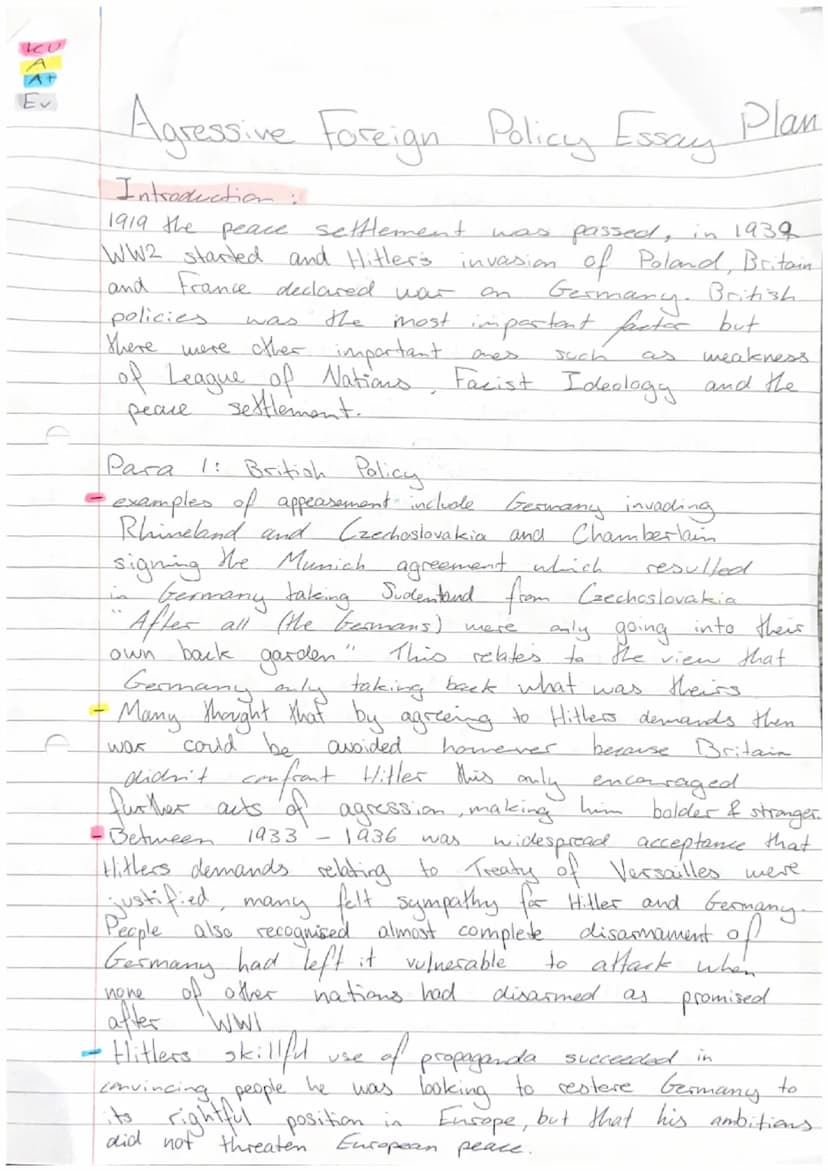 KU
A
A+
Ev
Agressive Foreign Policy Essay Plan
Introduction :
1919 the peace settlement was passed, in 1939
WW2 started and Hitler's invasion of Poland, Britain
and France declared war on Germany. British
policies was the most important factor but
there were other important ones such as weakness
of League of Nations, Facist Ideology and the
peace settlement.
Para 1: British Policy
- examples of appeasement include Germany invading
Rhineland and Czechoslovakia and Chamberlain
signing the Munich agreement which resulted
in Germany taking Sudentand from Czechoslovakia
"After all (the Germans) were only going into their
own back garden" This relates to the view that
Germany only taking back what was theirs
- Many thought that by agreeing to Hitlers demands then
war could be avoided however because Britain
didn't confront Hitler this only encouraged
further acts of agression, making him bolder & stronger.
- Between 1933 - 1936 was widespread acceptance that
Hitlers demands relating to Treaty of Versailles were
justified, many felt sympathy for Hitler and Germany.
People also recognised almost complete disarmament of
Germany had left it vulnerable to attack when
none of other nations had disarmed as promised
after WW1
- Hitlers skillful use of propaganda succeeded in
convincing people he was looking to restore Germany to
its rightful position in Europe, but that his ambitions
did not threaten European peace.